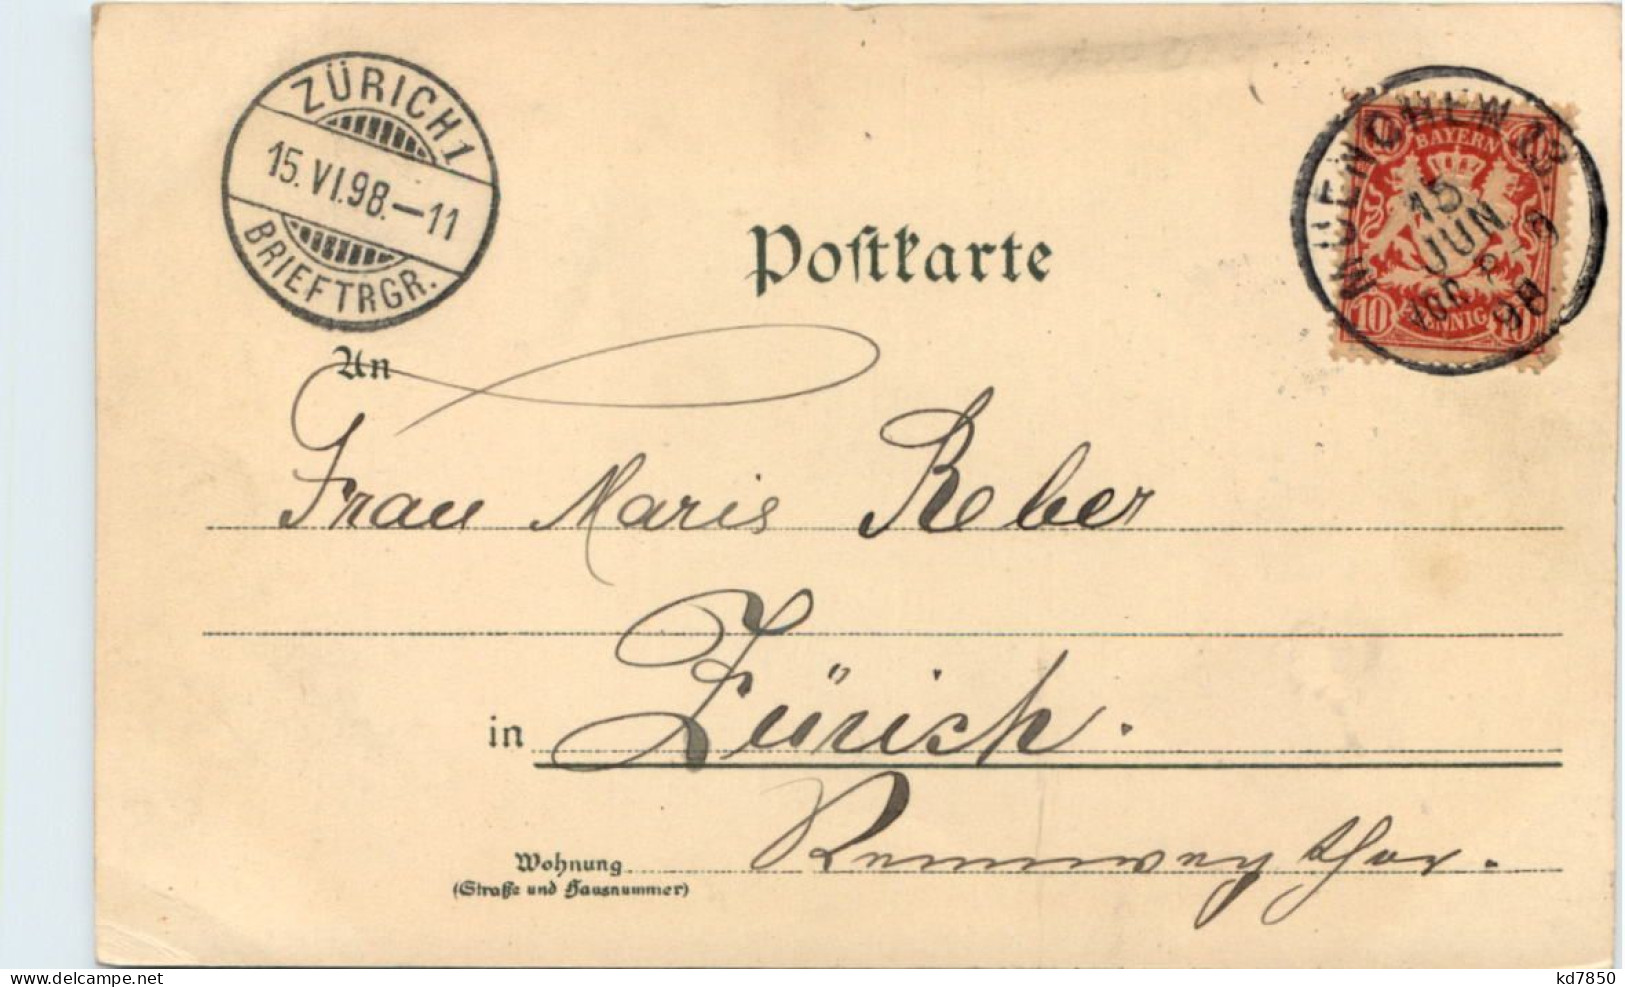 ZÜRICH 1
15.VI.98.–11
BRIEFTRGR.
MUENCHEN
15
JUN
98.
BAYERN
10 PFENNIG 10
Postkarte
An
Frau Marie Reber
in Zürich.
Rennwegthor.
Wohnung
(Straße und Hausnummer)
www.delcampe.net
kd7850